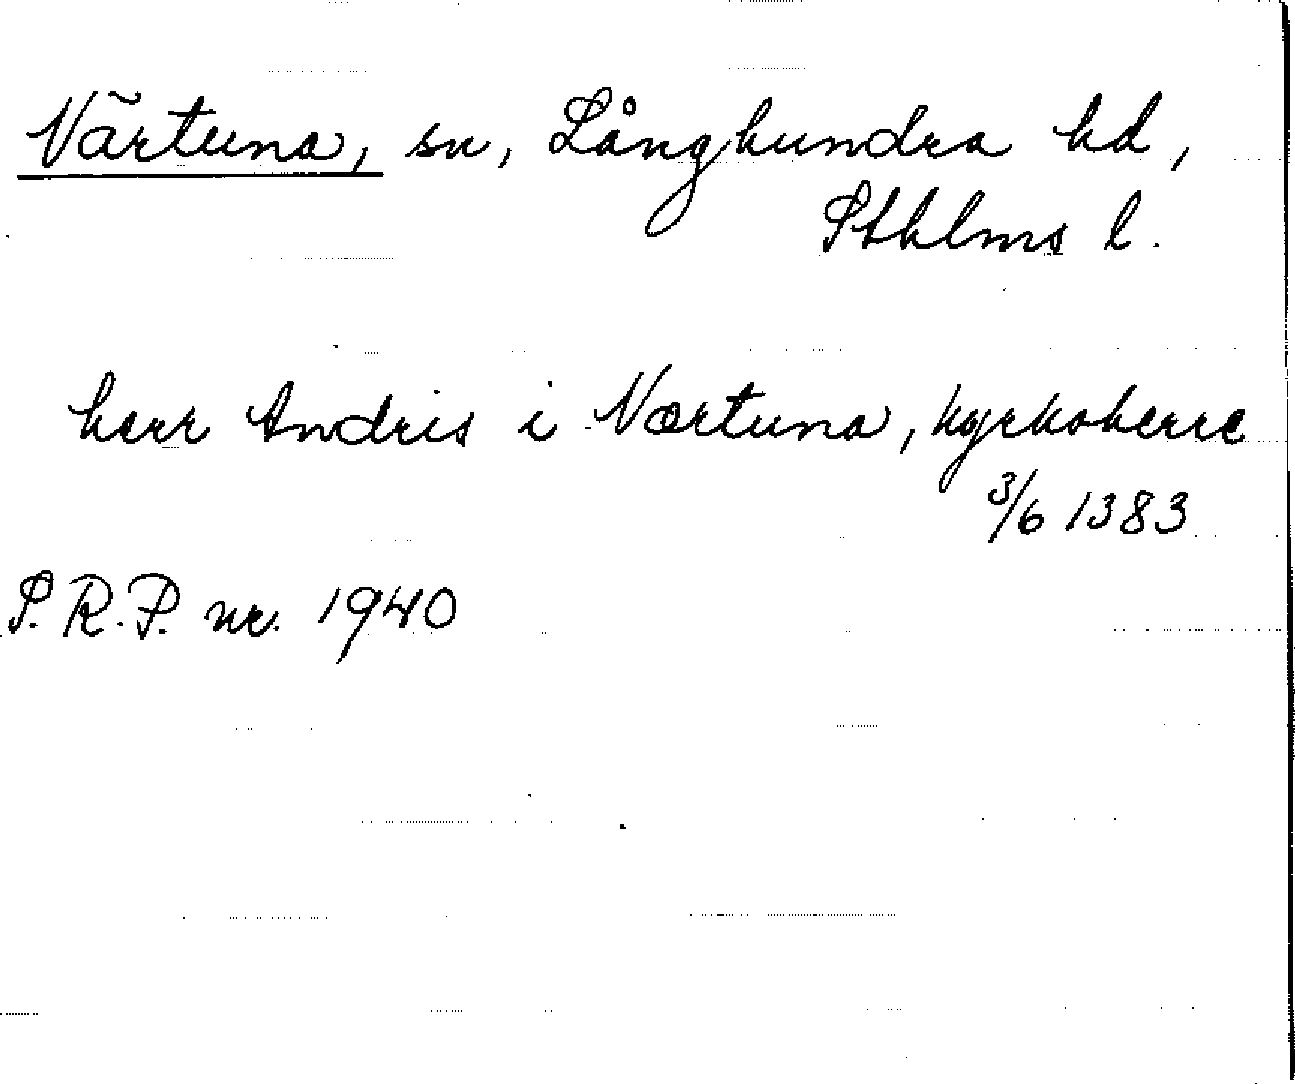 Närtuna, sn, Långhundra hd,
Sthlms l.
herr Andris i Nærtuna, kyrkoherre
3/6 1383
S.R.P. nr. 1940